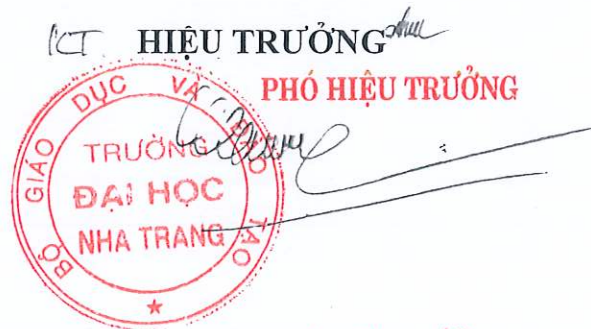 KT HIỆU TRƯỞNG
PHÓ HIỆU TRƯỞNG
BỘ GIÁO DỤC VÀ ĐÀO TẠO
TRƯỜNG
ĐẠI HỌC
NHA TRANG